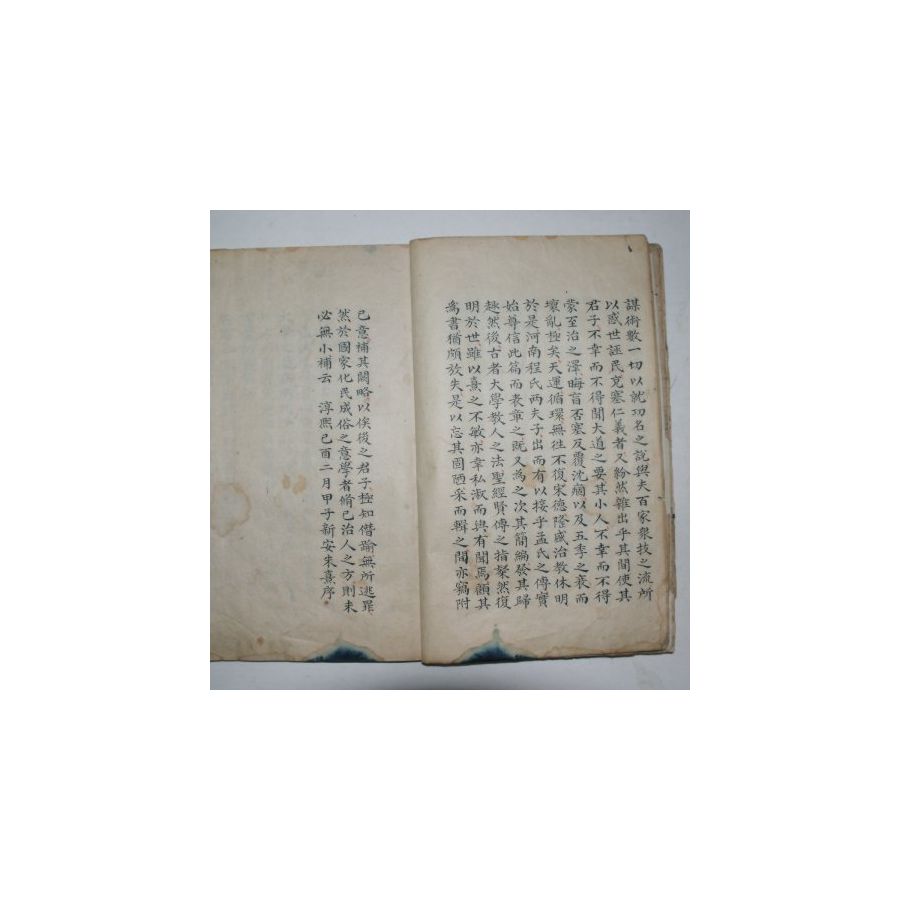 謀術數一切以就功名之說與夫百家衆技之流所
以惑世誣民充塞仁義者又紛然雜出乎其間使其
君子不幸而不得聞大道之要其小人不幸而不得
蒙至治之澤晦盲否塞反覆沈痼以及五季之衰而
壞亂極矣天運循環無徃不復宋德隆盛治教休明
於是河南程氏兩夫子出而有以接乎孟氏之傳實
始尊信此篇而表章之旣又爲之次其簡編發其歸
趣然後古者大學教人之法聖經賢傳之指粲然復
明於世雖以熹之不敏亦幸私淑而與有聞焉顧其
爲書猶頗放失是以忘其固陋采而輯之間亦竊附
已意補其闕略以俟後之君子極知僭踰無所逃罪
然於國家化民成俗之意學者脩已治人之方則未
必無小補云 淳熙已酉二月甲子新安朱熹序